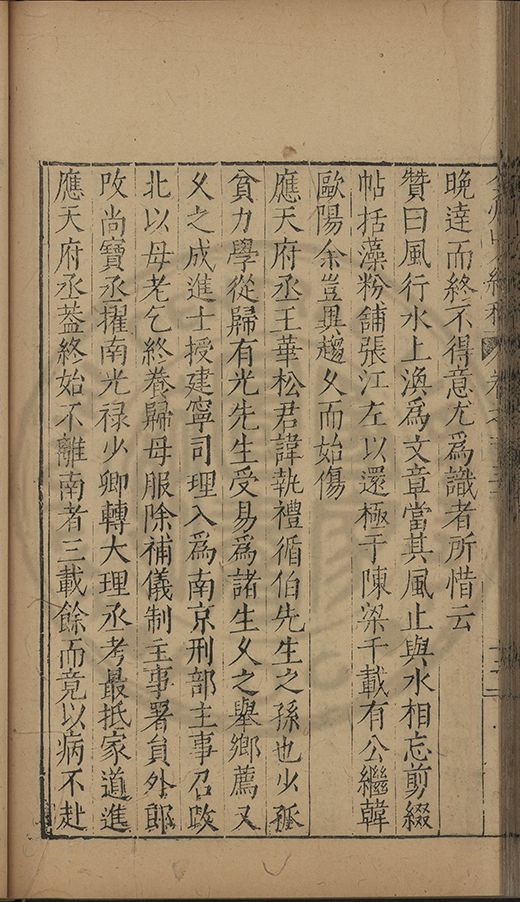 晚達而終不得意尤為識者所惜云
贊曰風行水上渙為文章當其風止與水相忘剪綴
帖括藻粉舖張江左以還極于陳梁千載有公繼韓
歐陽余豈異趨久而始傷
應天府丞王華松君諱執禮循伯先生之孫也少孤
貧力學從歸有光先生受易為諸生久之舉鄉薦又
久之成進士授建寧司理入為南京刑部主事召改
北以母老乞終養歸母服除補儀制主事署員外郎
改尚寶丞擢南光禄少卿轉大理丞考最抵家道進
應天府丞葢終始不離南者三載餘而竟以病不赴